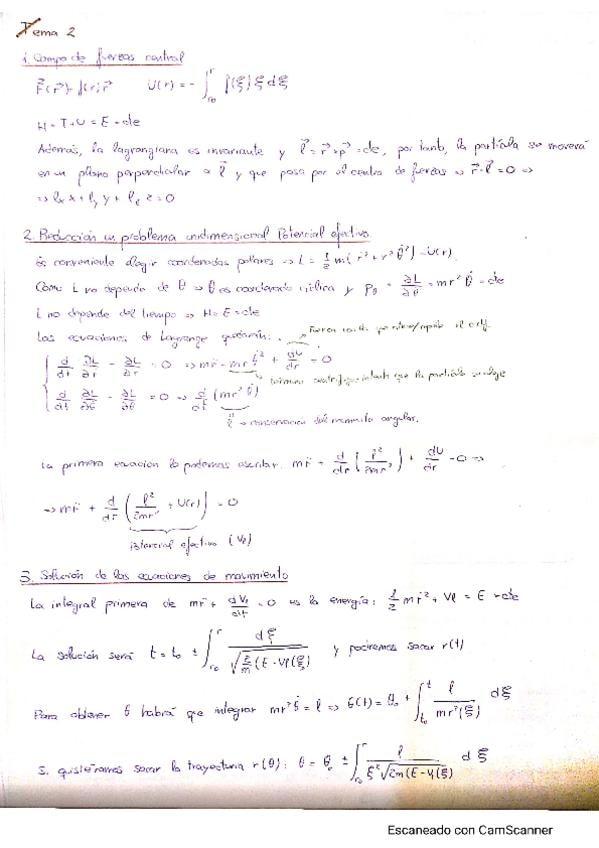 Tema 2
1. Campo de fuerzas central
F⃗(r⃗) = f(r) r⃗    U(r) = - ∫_{r₀}^{r} f(ξ) ξ dξ
H = T + U = E = cte
Además, la lagrangiana es invariante y l⃗ = r⃗ × p⃗ = cte, por tanto, la partícula se moverá
en un plano perpendicular a l⃗ y que pasa por el centro de fuerzas ⇒ r⃗·l⃗ = 0 ⇒
⇒ lₓ x + l_y y + l_z z = 0
2. Reducción un problema unidimensional Potencial efectivo
Es conveniente elegir coordenadas polares ⇒ L = 1/2 m(ṙ² + r² θ̇²) - U(r)
Como L no depende de θ ⇒ θ es coordenada cíclica y p_θ = ∂L/∂θ̇ = mr² θ̇ = cte
L no depende del tiempo ⇒ H = E = cte
Las ecuaciones de Lagrange quedarán:
Fuerza
d/dt ∂L/∂ṙ - ∂L/∂r = 0 ⇒ mr̈ - mr θ̇² + dU/dr = 0
término centrífugo que la partícula
d/dt ∂L/∂θ̇ - ∂L/∂θ = 0 ⇒ d/dt (mr² θ̇)
l⃗ → conservación del momento angular.
La primera ecuación la podemos escribir: mr̈ + d/dr (l²/2mr²) + dU/dr = 0 ⇒
⇒ mr̈ + d/dr (l²/2mr² + U(r)) = 0
Potencial efectivo (Vₑ)
3. Solución de las ecuaciones de movimiento
La integral primera de mr̈ + dVₑ/dr = 0 es la energía: 1/2 mṙ² + Vₑ = E = cte
La solución será t = t₀ ± ∫_{r₀}^{r} dξ / √(2/m (E - Vₑ(ξ)) y podremos sacar r(t)
Para obtener θ habrá que integrar mr² θ̇ = l ⇒ θ(t) = θ₀ + ∫_{t₀}^{t} l / mr²(ξ) dξ
Si quisiéramos sacar la trayectoria r(θ): θ = θ₀ ± ∫_{r₀}^{r} l / ξ² √(2m(E - Vₑ(ξ)) dξ
Escaneado con CamScanner